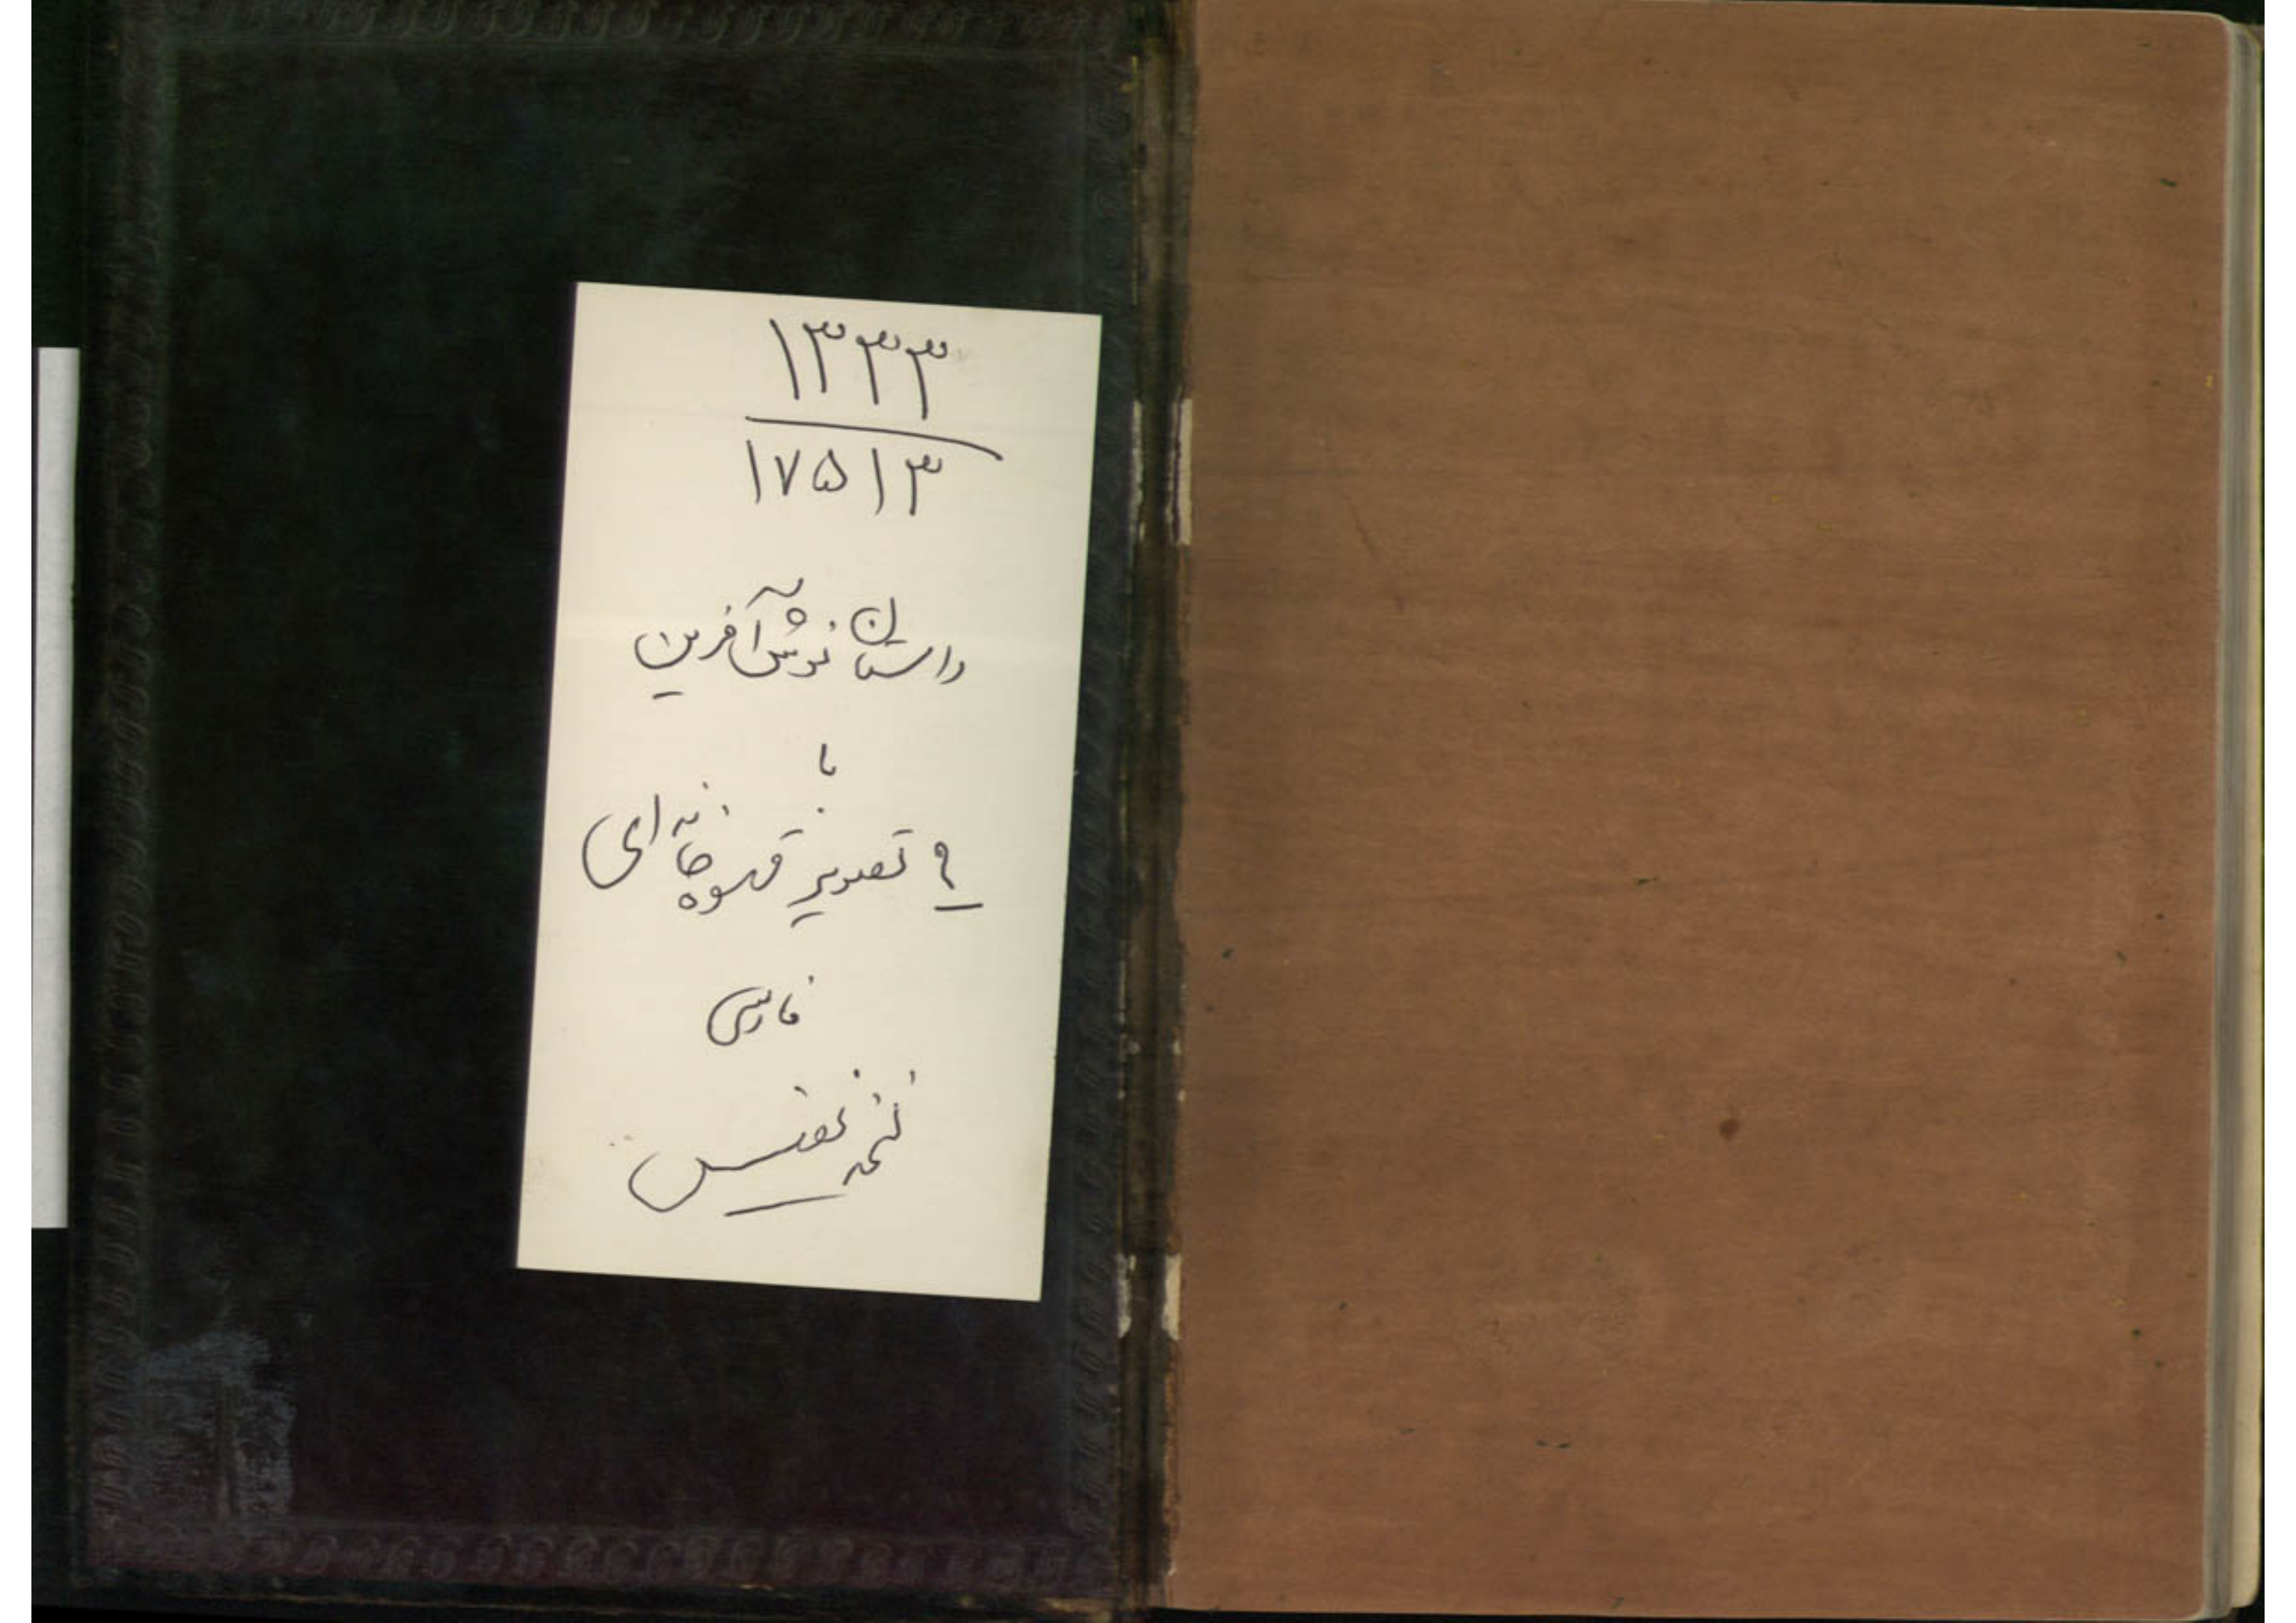 ۱۳۳۳
۱۷۵۱۳
داستان نوش آفرین
با
۹ تصویر قهوه خانه ای
فارسی
نسخه نفیس